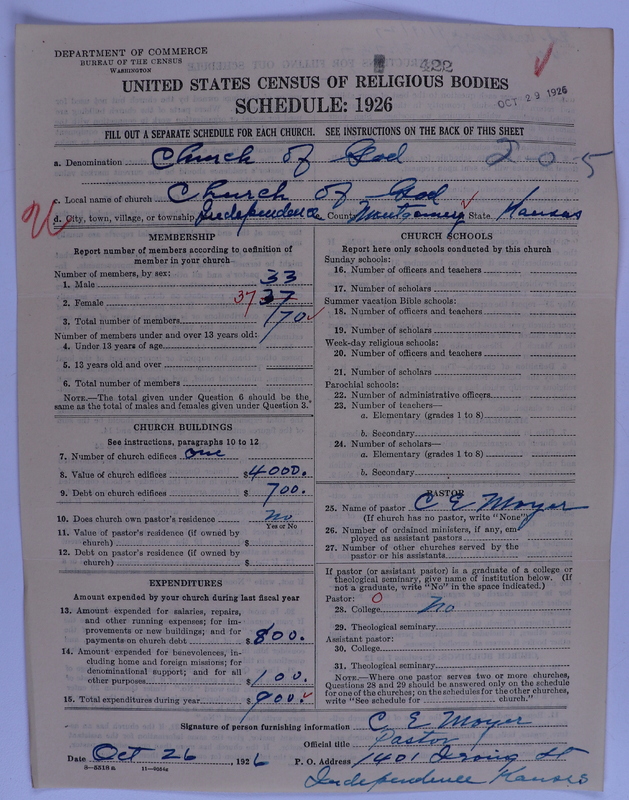 422
DEPARTMENT OF COMMERCE
BUREAU OF THE CENSUS
WASHINGTON
UNITED STATES CENSUS OF RELIGIOUS BODIES
SCHEDULE: 1926
OCT 29 1926
FILL OUT A SEPARATE SCHEDULE FOR EACH CHURCH. SEE INSTRUCTIONS ON THE BACK OF THIS SHEET
a. Denomination Church of God 205
c. Local name of church Church of God
d. City, town, village, or township Independence County Montgomery State Kansas
MEMBERSHIP
Report number of members according to definition of member in your church
Number of members, by sex:
1. Male 33
2. Female 37 37
3. Total number of members 170
Number of members under and over 13 years old:
4. Under 13 years of age
5. 13 years old and over
6. Total number of members
NOTE.—The total given under Question 6 should be the same as the total of males and females given under Question 3.
CHURCH BUILDINGS
See instructions, paragraphs 10 to 12
7. Number of church edifices one
8. Value of church edifices $4000.
9. Debt on church edifices $700.
10. Does church own pastor's residence No
Yes or No
11. Value of pastor's residence (if owned by church) $
12. Debt on pastor's residence (if owned by church) $
EXPENDITURES
Amount expended by your church during last fiscal year
13. Amount expended for salaries, repairs, and other running expenses; for improvements or new buildings; and for payments on church debt $800.
14. Amount expended for benevolences, including home and foreign missions; for denominational support; and for all other purposes $100.
15. Total expenditures during year $900.
CHURCH SCHOOLS
Report here only schools conducted by this church
Sunday schools:
16. Number of officers and teachers
17. Number of scholars
Summer vacation Bible schools:
18. Number of officers and teachers
19. Number of scholars
Week-day religious schools:
20. Number of officers and teachers
21. Number of scholars
Parochial schools:
22. Number of administrative officers
23. Number of teachers—
a. Elementary (grades 1 to 8)
b. Secondary
24. Number of scholars—
a. Elementary (grades 1 to 8)
b. Secondary
PASTOR
25. Name of pastor C E Moyer
(If church has no pastor, write "None")
26. Number of ordained ministers, if any, employed as assistant pastors
27. Number of other churches served by the pastor or his assistants
If pastor (or assistant pastor) is a graduate of a college or theological seminary, give name of institution below. (If not a graduate, write "No" in the space indicated.)
Pastor: 0
28. College No
29. Theological seminary
Assistant pastor:
30. College
31. Theological seminary
NOTE.—Where one pastor serves two or more churches, Questions 28 and 29 should be answered only on the schedule for one of the churches; on the schedules for the other churches, write "See schedule for church."
Signature of person furnishing information C E Moyer
Official title Pastor
Date Oct 26, 1926 P. O. Address 1401 Irving St
Independence Kansas